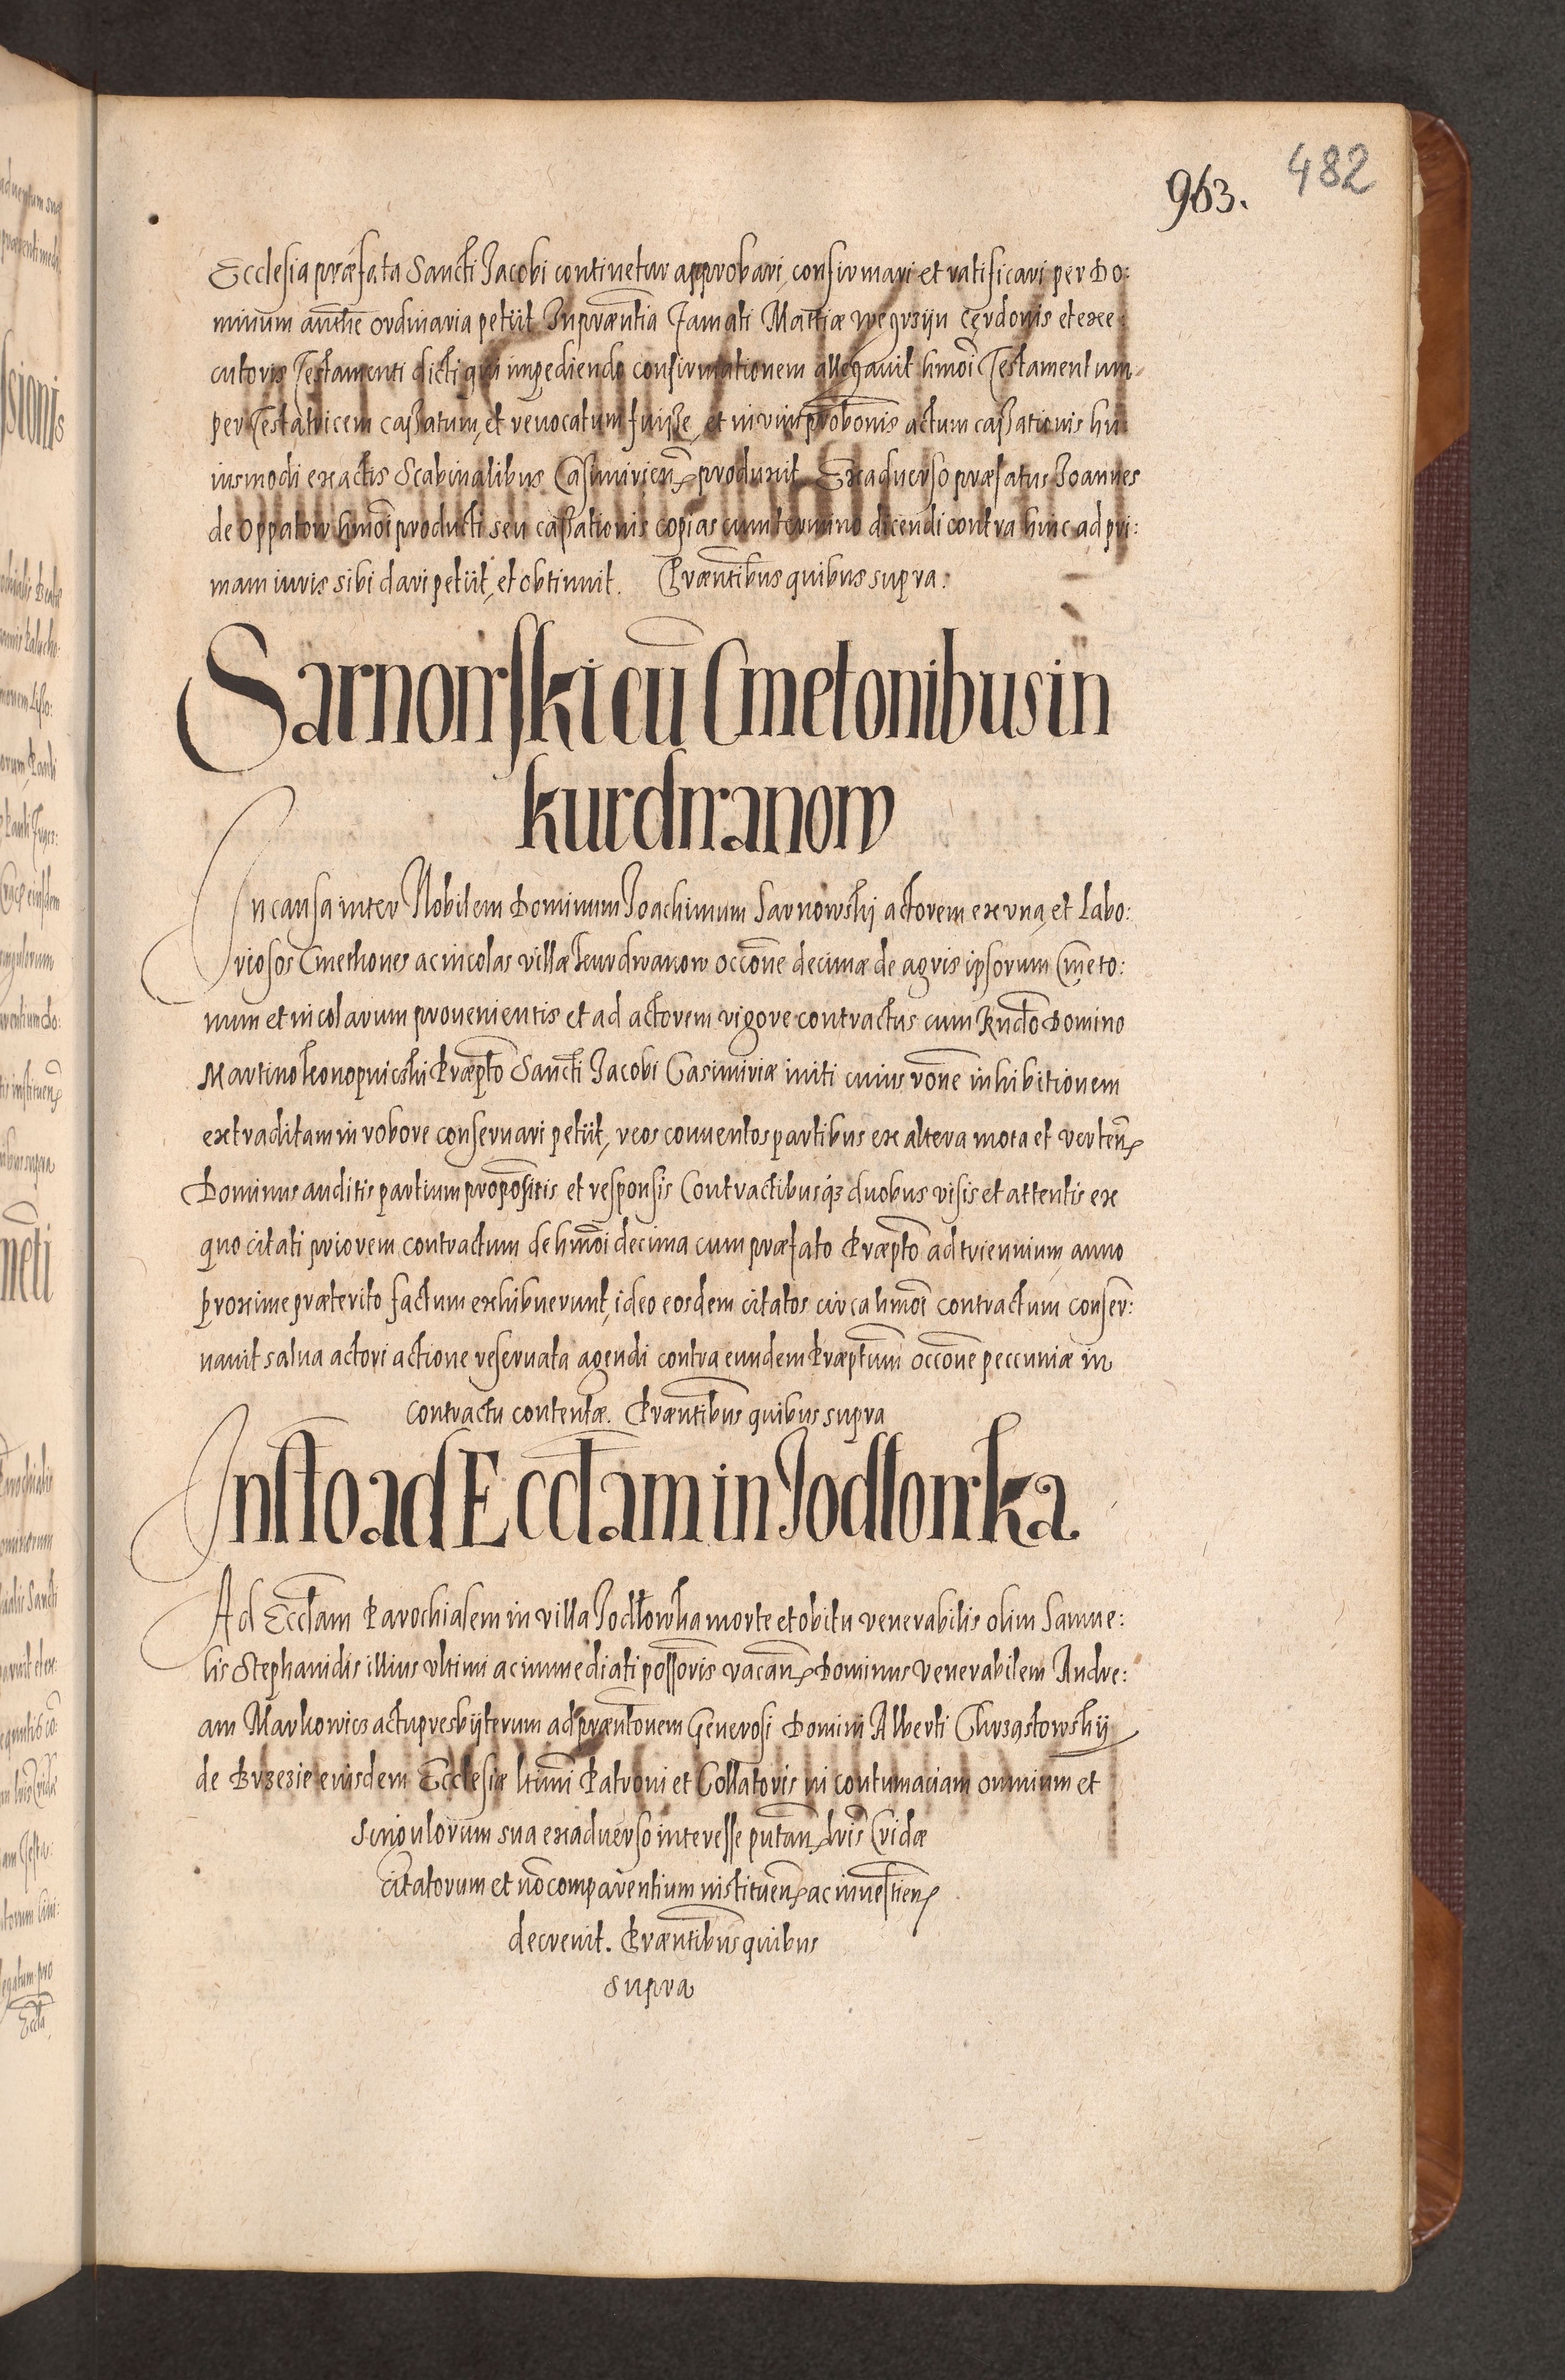 482
963.
Ecclesia præfata Sancti Jacobi continetur approbari, confirmari et ratificari per Do:
minum authē ordinaria petiit In præntia famati Matthiæ Węgrzijn cerdonis et exe:
cutoris Testamenti dicti qui impediendo confirmationem allegavit hmōi Testamentum
per Testatricem cassatum, et revocatum fuisse, et in vim probōnis actum cassationis hu:
iusmodi ex actis Scabinalibus Casimirien̄ produxit. Ex adverso præfatus Joannes
de Oppatow hmōi producti seu cassationis copias cum termino dicendi contra hinc ad pri:
mam iuris sibi dari petiit, et obtinuit. Præntibus quibus supra.
Sarnowski cū Cmetonibus in
kurdwanow
In causa inter Nobilem Dominum Joachimum Sarnowski actorem ex una, et Labo:
riosos Cmethones ac incolas villæ Kurdwanow occōne decimæ de agris ipsorum Cmeto:
num et incolarum provenientis et ad actorem vigore contractus cum Rndō Domino
Martino Konopnicski Præpto Sancti Jacobi Casimiriæ initi cuius rōne inhibitionem
extraditam in robore conservari petiit, reos conventos partibus ex altera mota et verten̄
Dominus auditis partium propositis et responsis Contractibusq3 duobus visis et attentis ex
quo citati priorem contractum de hmōi decima cum præfato Præpto ad triennium, anno
proxime præterito factum exhibuerunt, ideo eosdem citatos circa hmōi contractum conser:
vavit salva actori actione reservata agendi contra eundem Præptum occōne peccuniæ in
contractu contentæ. Præntibus quibus supra
Insto ad Ecclam in Jodlowka
Ad Ecclam Parochialem in villa Jodłowka morte et obitu venerabilis olim Samue:
lis Stephanidis illius ultimi ac immediati possoris vacan̄ Dominus venerabilem Andre:
am Markowicz actu presbijterum ad præntōnem Generosi Domini Alberti Chrząstowskij
de Brzezie eiusdem Ecclesiæ ltimi Patroni et Collatoris in contumaciam omnium et
singulorum sua ex adverso interesse putan̄ lris Cridæ
citatorum et nō comparentium instituen̄ ac investien̄
decrevit. Præntibus quibus
supra